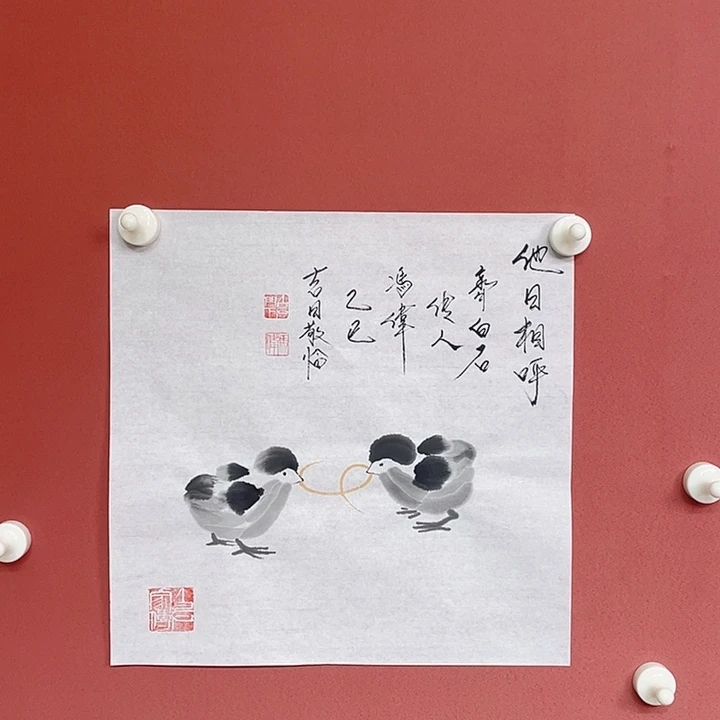 他日相呼
齊白石
傳人
馮偉
乙巳
吉日敬